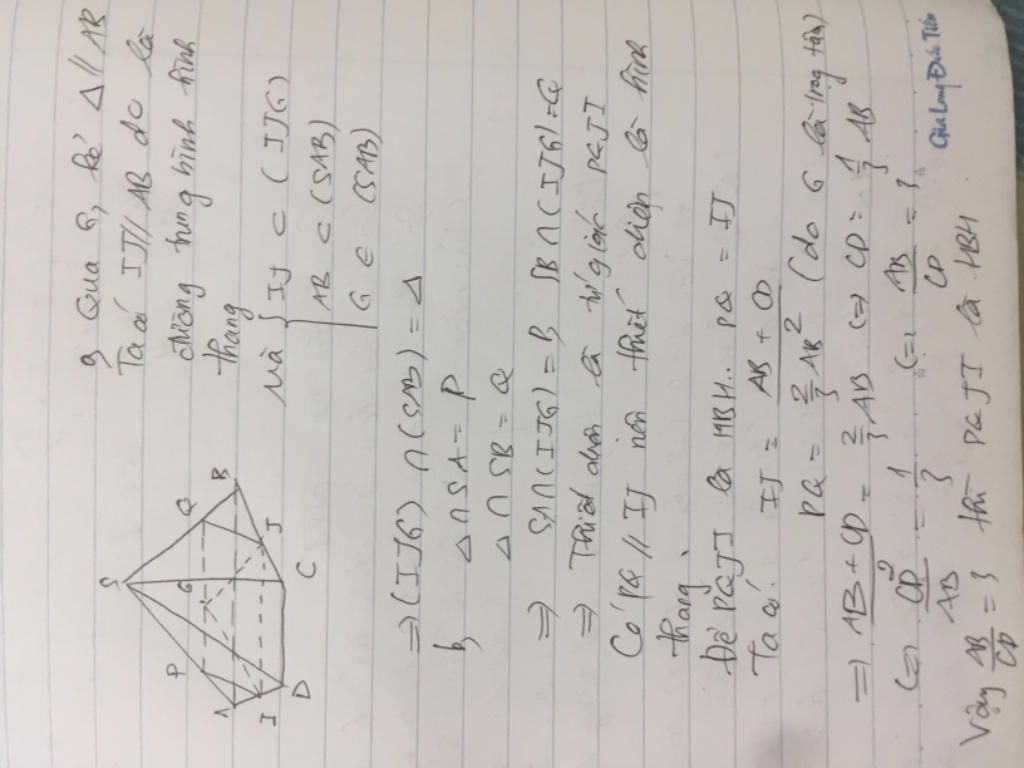 a, Qua G, kẻ Δ // AB
Ta có IJ // AB do là
đường trung bình hình
thang
Mà { IJ ⊂ (IJG)
AB ⊂ (SAB)
G ∈ (SAB)
=> (IJG) ∩ (SAB) = Δ
b, Δ ∩ SA = P
Δ ∩ SB = Q
=> SA ∩ (IJG) = P, SB ∩ (IJG) = Q
=> Thiết diện là tứ giác PQJI
Có PQ // IJ nên thiết diện là hình
thang
Để PQJI là HBH. PQ = IJ
Ta có. IJ = (AB + CD)/2
PQ = 2/3 AB (do G là trọng tâm)
=> (AB + CD)/2 = 2/3 AB <=> CD = 1/3 AB
<=> CD/AB = 1/3 <=> AB/CD = 3
Vậy AB/CD = 3 thì PQJI là HBH
S
P
G
Q
A
B
I
J
D
C